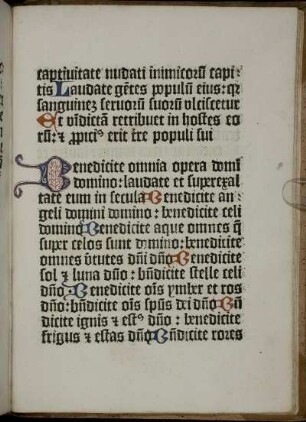 captiuitate nudati inimicorū capi-
tis Laudate gētes populū eius: qꝛ
sanguinez seruorū suorū vlciscetur
Et vīdictā retribuet in hostes eo
rū: ⁊ ꝓpiciꝰ erit tr̄e populi sui
Benedicite omnia opera domī
domino: laudate et superexal
tate eum in secula Benedicite an
geli domini domino: benedicite celi
domino Benedicite aque omnes q̄
super celos sunt domino: benedicite
omnes v̄tutes dn̄i dn̄o Benedicite
sol ⁊ luna dn̄o: bn̄dicite stelle celi
dn̄o Benedicite oīs ymber et ros
dn̄o: bn̄dicite oīs spūs dei dn̄o Bn̄
dicite ignis ⁊ estꝰ dn̄o: benedicite
frigus ⁊ estas dn̄o Bn̄dicite rores